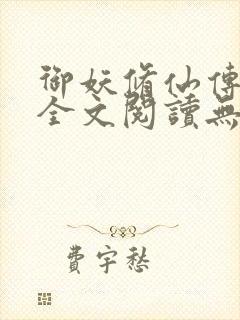 御妖脩仙傳
全文閱讀無
費宇愁